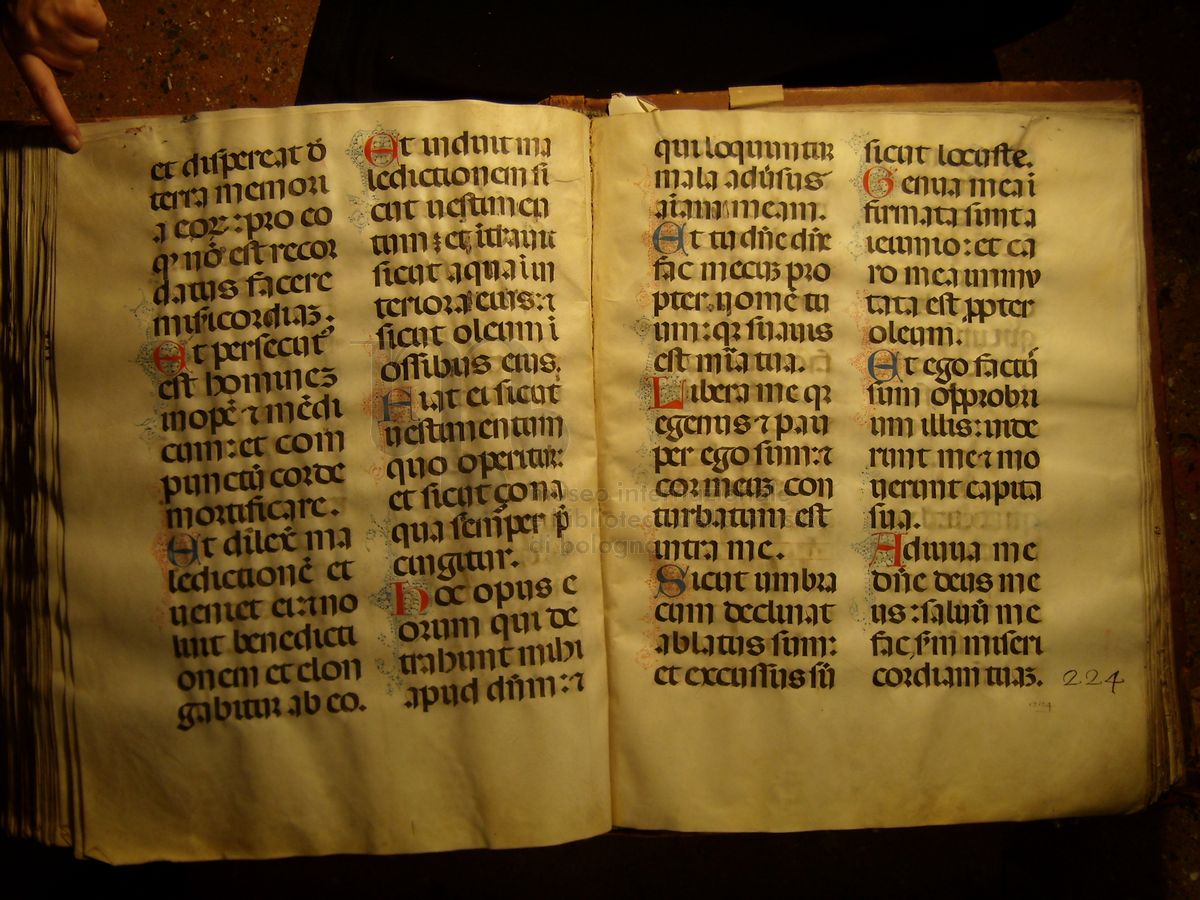 et dispereat d̄
terra memori
a eoꝝ: pro eo
qꝫ nō est recor
datus facere
misericordiaꝫ.
Et persecut᷒
est homineꝫ
inopē ⁊ mēdi
cum: et com
punctū corde
mortificare.
Et dilexͭ ma
ledictionē et
ueniet ei: ⁊ no
luit benedicti
onem et elon
gabitur ab eo.
Et induit ma
ledictionem si
cut uestimen
tum: et ītrauit
sicut aqua in
teriora eius: ⁊
sicut oleum i
ossibus eius.
Fiat ei sicut
uestimentum
quo operitur:
et sicut çona
qua semper p̄
cingitur.
Hoc opus e
orum qui de
trahunt mihi
apud dūm: ⁊
qui loquuntur
mala adūsus
aīam meam.
Et tu dn̄e dn̄e
fac mecuꝫ pro
pter nomē tu
um: qꝛ suauis
est mīa tua.
Libera me qꝛ
egenus ⁊ pau
per ego sum: ⁊
cor meuꝫ con
turbatum est
intra me.
Sicut umbra
cum declinat
ablatus sum:
et excussus sū
sicut locuste.
Genua mea i
firmata sunt a
ieiunio: et ca
ro mea immu
tata est ꝓpter
oleum.
Et ego factū
sum opprobri
um illis: uide
runt me ⁊ mo
uerunt capita
sua.
Adiuua me
dn̄e deus me
us: saluū me
fac, sm̄ miseri
cordiam tuaꝫ.
224
museo internazionale
e biblioteca della musica
di bologna